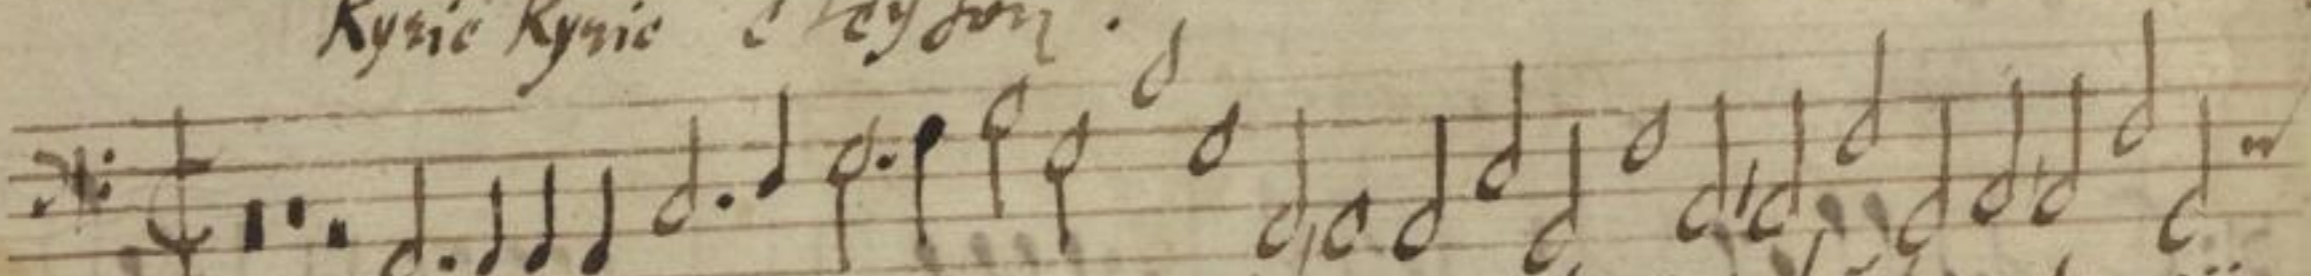 Kyrie Kyrie eleyson.